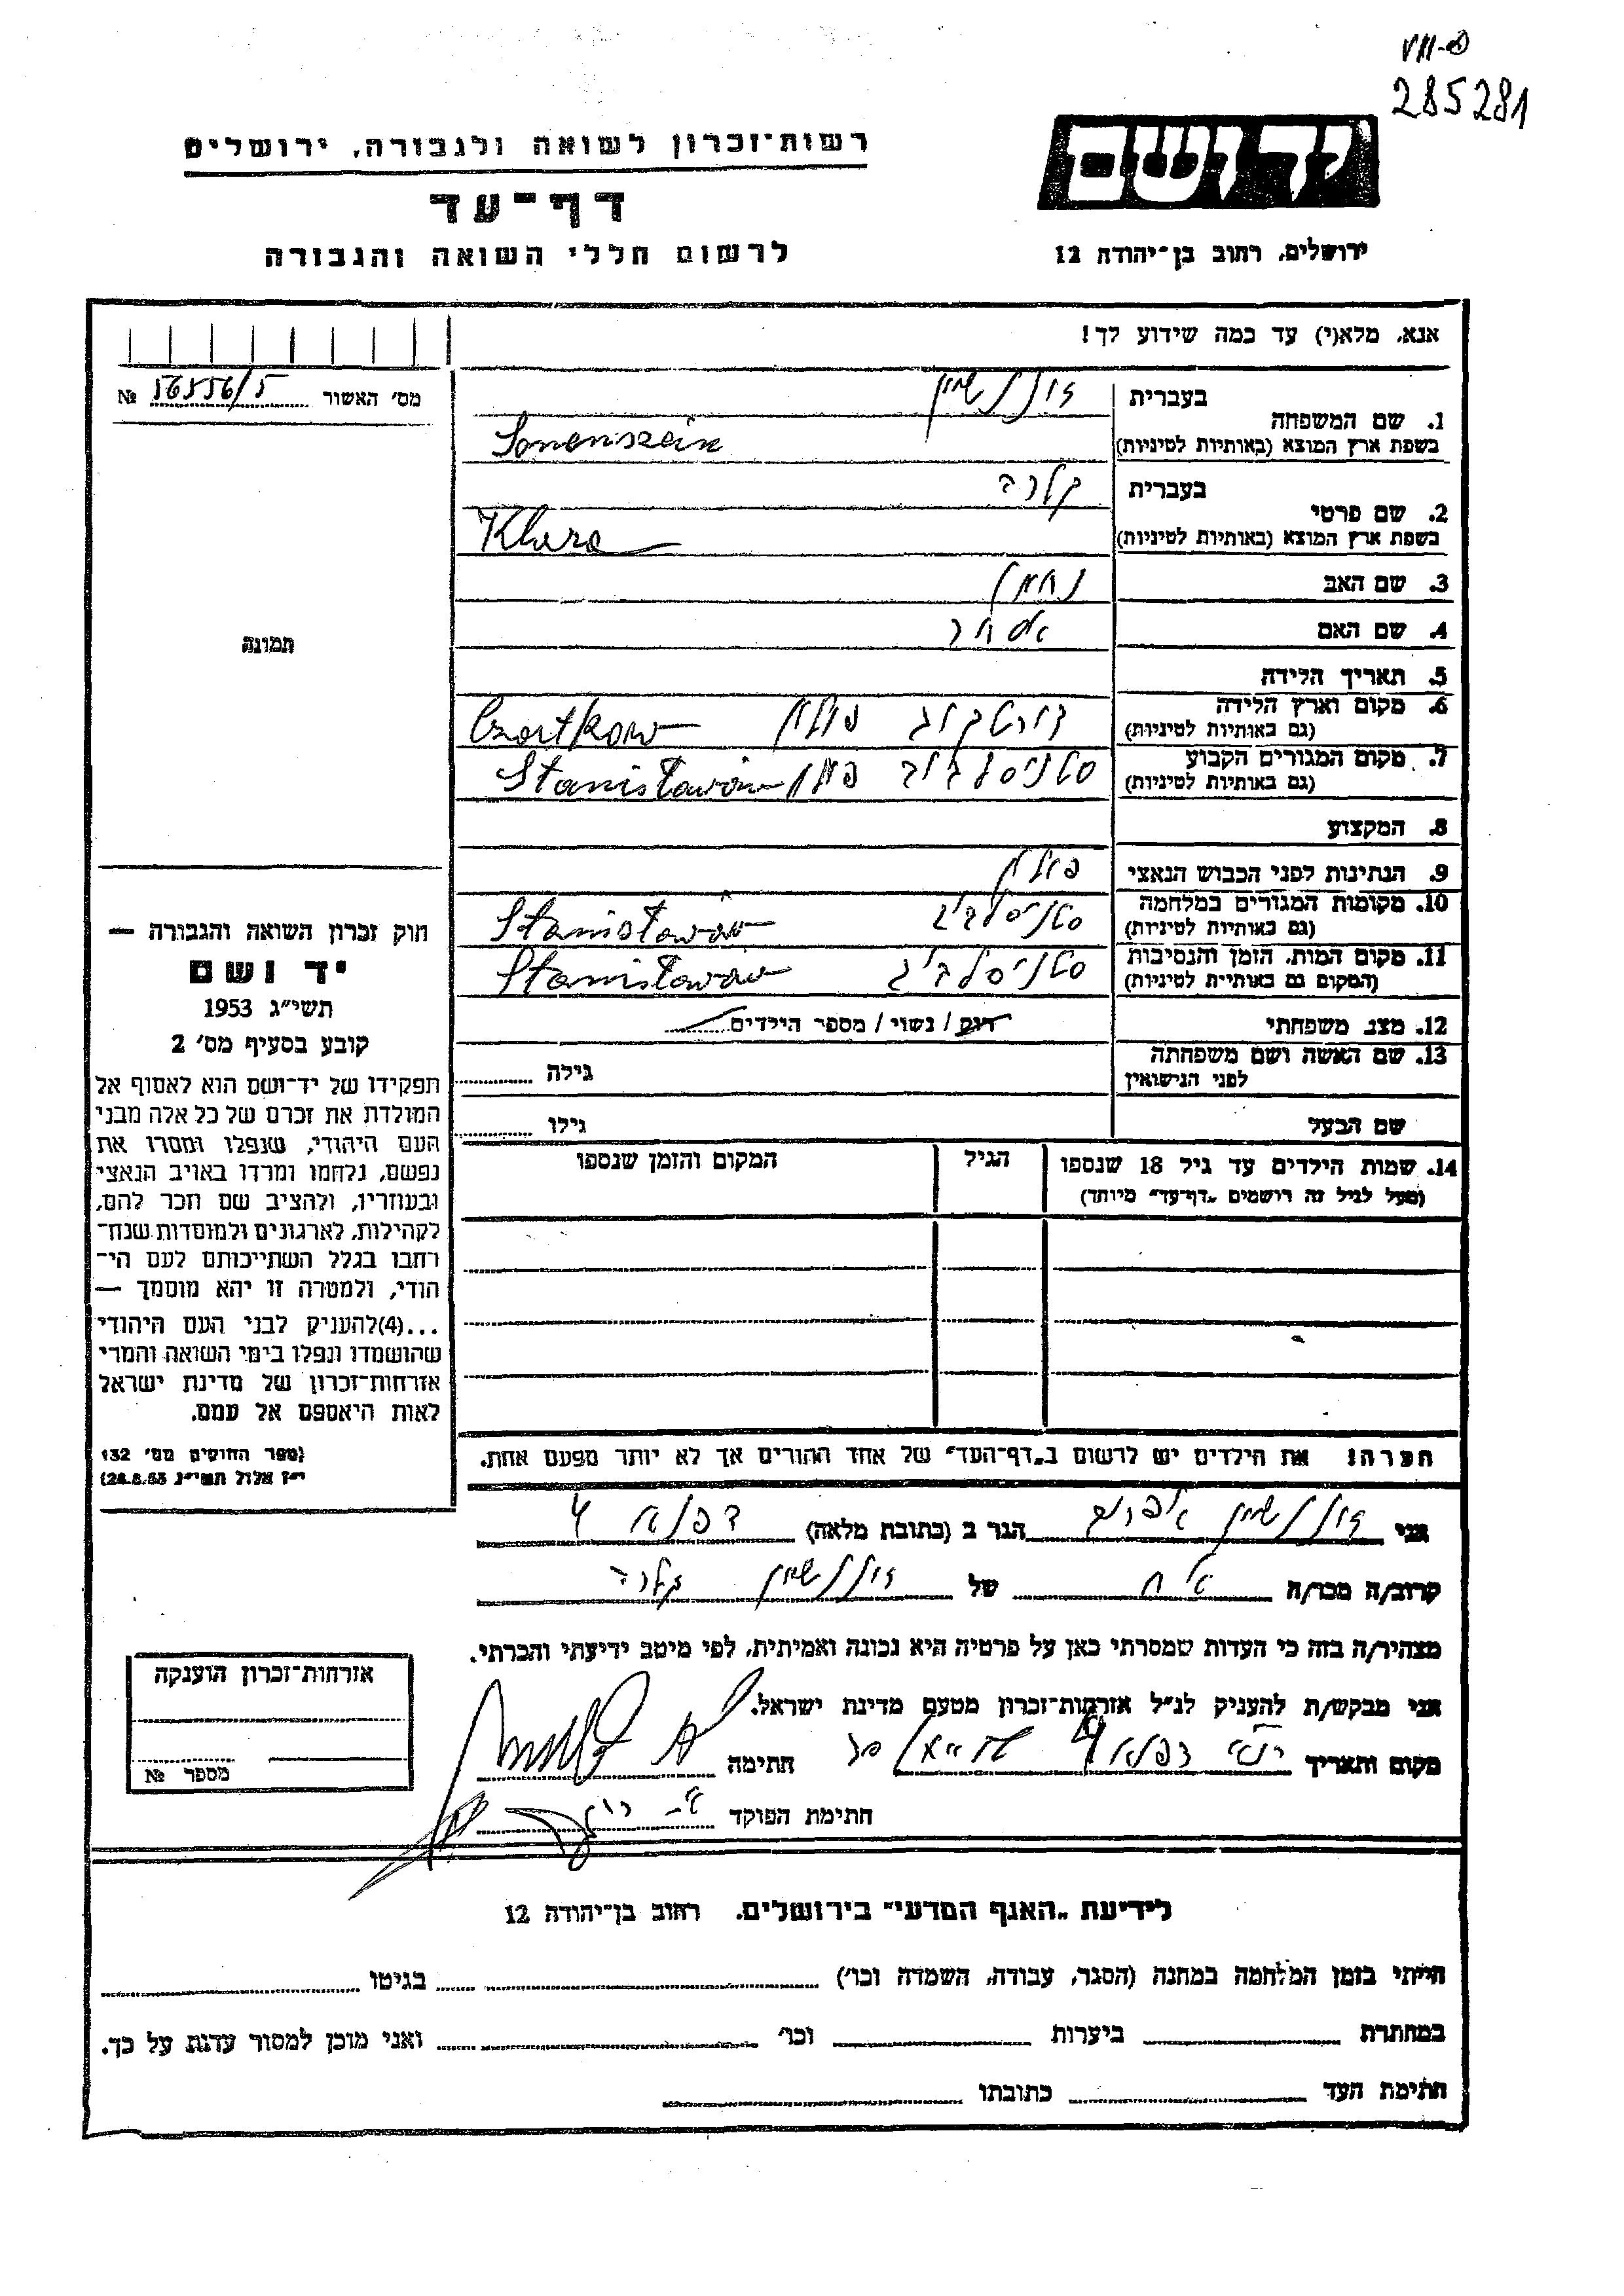 285281
יד ושם
רשות־זכרון לשואה ולגבורה, ירושלים
דף־עד
ירושלים, רחוב בן־יהודה 12
לרשום חללי השואה והגבורה
אנא, מלא(י) עד כמה שידוע לך!
מס׳ האשור 56556/5 №
1. שם המשפחה
בעברית זוננשיין
בשפת ארץ המוצא (באותיות לטיניות) Sonenszein
2. שם פרטי
בעברית קלרה
בשפת ארץ המוצא (באותיות לטיניות) Klara
3. שם האב נחמן
4. שם האם אסתר
תמונה
5. תאריך הלידה
6. מקום וארץ הלידה צורטקוב פולין Czortkow
(גם באותיות לטיניות)
7. מקום המגורים הקבוע סטניסלבוב פולין Stanisławów
(גם באותיות לטיניות)
8. המקצוע
9. הנתינות לפני הכבוש הנאצי פולין
10. מקומות המגורים במלחמה סטניסלבוב Stanisławów
(גם באותיות לטיניות)
11. מקום המות, הזמן והנסיבות סטניסלבוב Stanisławów
(המקום גם באותיות לטיניות)
12. מצב משפחתי רווק / נשוי / מספר הילדים
13. שם האשה ושם משפחתה
לפני הנישואין
גילה
שם הבעל גילו
14. שמות הילדים עד גיל 18 שנספו הגיל המקום והזמן שנספו
(מעל לגיל זה רושמים „דף־עד״ מיוחד)
חוק זכרון השואה והגבורה —
יד ושם
תשי״ג 1953
קובע בסעיף מס׳ 2
תפקידו של יד־ושם הוא לאסוף אל
המולדת את זכרם של כל אלה מבני
העם היהודי, שנפלו ומסרו את
נפשם, נלחמו ומרדו באויב הנאצי
ובעוזריו, ולהציב שם וזכר להם,
לקהילות, לארגונים ולמוסדות שנח־
רבו בגלל השתייכותם לעם הי־
הודי, ולמטרה זו יהא מוסמך —
...(4) להעניק לבני העם היהודי
שהושמדו ונפלו בימי השואה והמרי
אזרחות־זכרון של מדינת ישראל
לאות היאספם אל עמם.
(ספר החוקים מס׳ 132
י״ז אלול תשי״ג 28.8.53)
הערה: את הילדים יש לרשום ב„דף־העד״ של אחד ההורים אך לא יותר מפעם אחת.
אני זוננשיין אפרים הגר ב (כתובת מלאה)
קרוב/ה מכר/ה אח של זוננשיין קלרה
מצהיר/ה בזה כי העדות שמסרתי כאן על פרטיה היא נכונה ואמיתית, לפי מיטב ידיעתי והכרתי.
אני מבקש/ת להעניק לנ״ל אזרחות־זכרון מטעם מדינת ישראל.
מקום ותאריך חתימה
חתימת הפוקד
אזרחות־זכרון הוענקה
מספר №
לידיעת „האגף המדעי״ בירושלים, רחוב בן־יהודה 12
הייתי בזמן המלחמה במחנה (הסגר, עבודה, השמדה וכו׳) בגיטו
במחתרת ביערות וכו׳ ואני מוכן למסור עדות על כך.
חתימת העד כתובתו